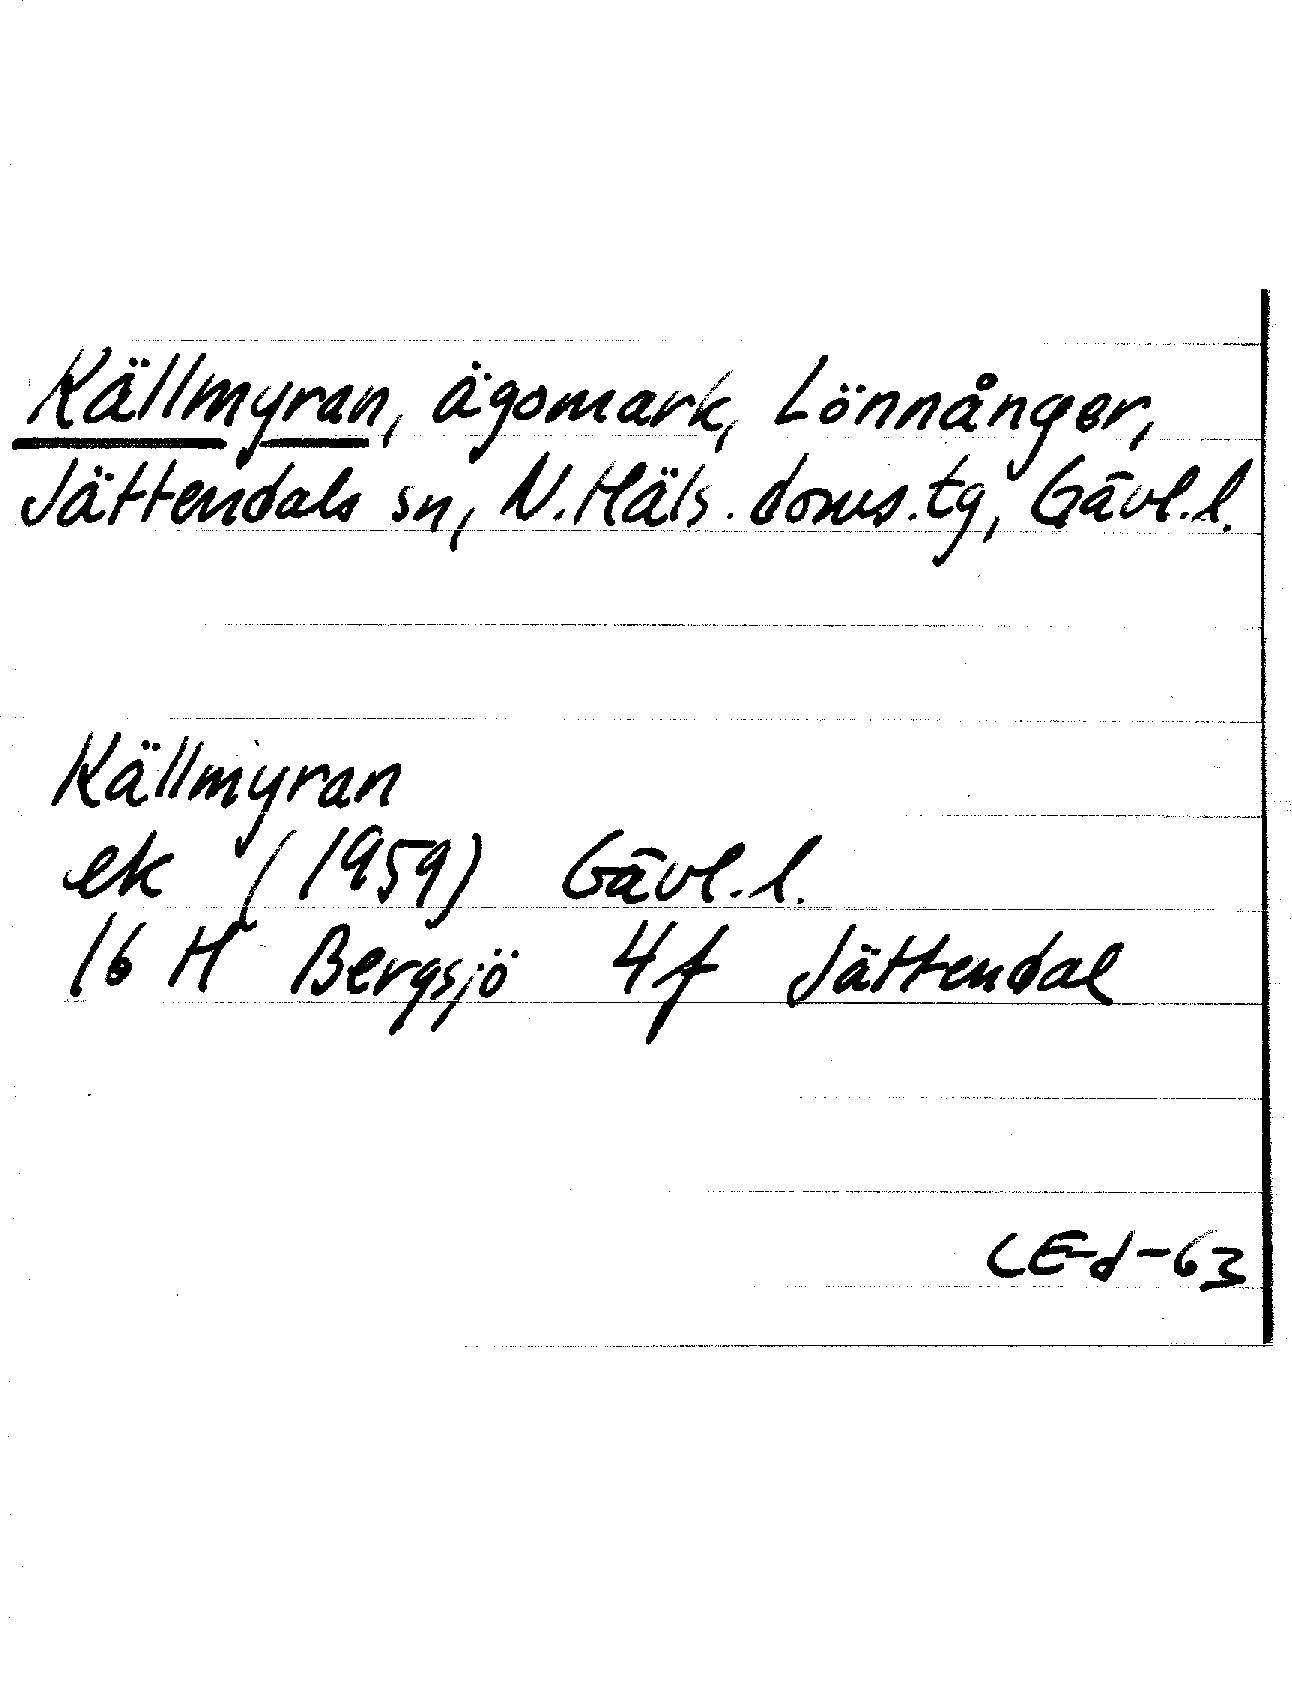 Källmyran, ägomark, Lönnånger,
Jättendals sn, N. Häls. doms.tg, Gävl.l.
Källmyran
ek (1959) Gävl.l.
16 H Bergsjö 4f Jättendal
CE-d-63